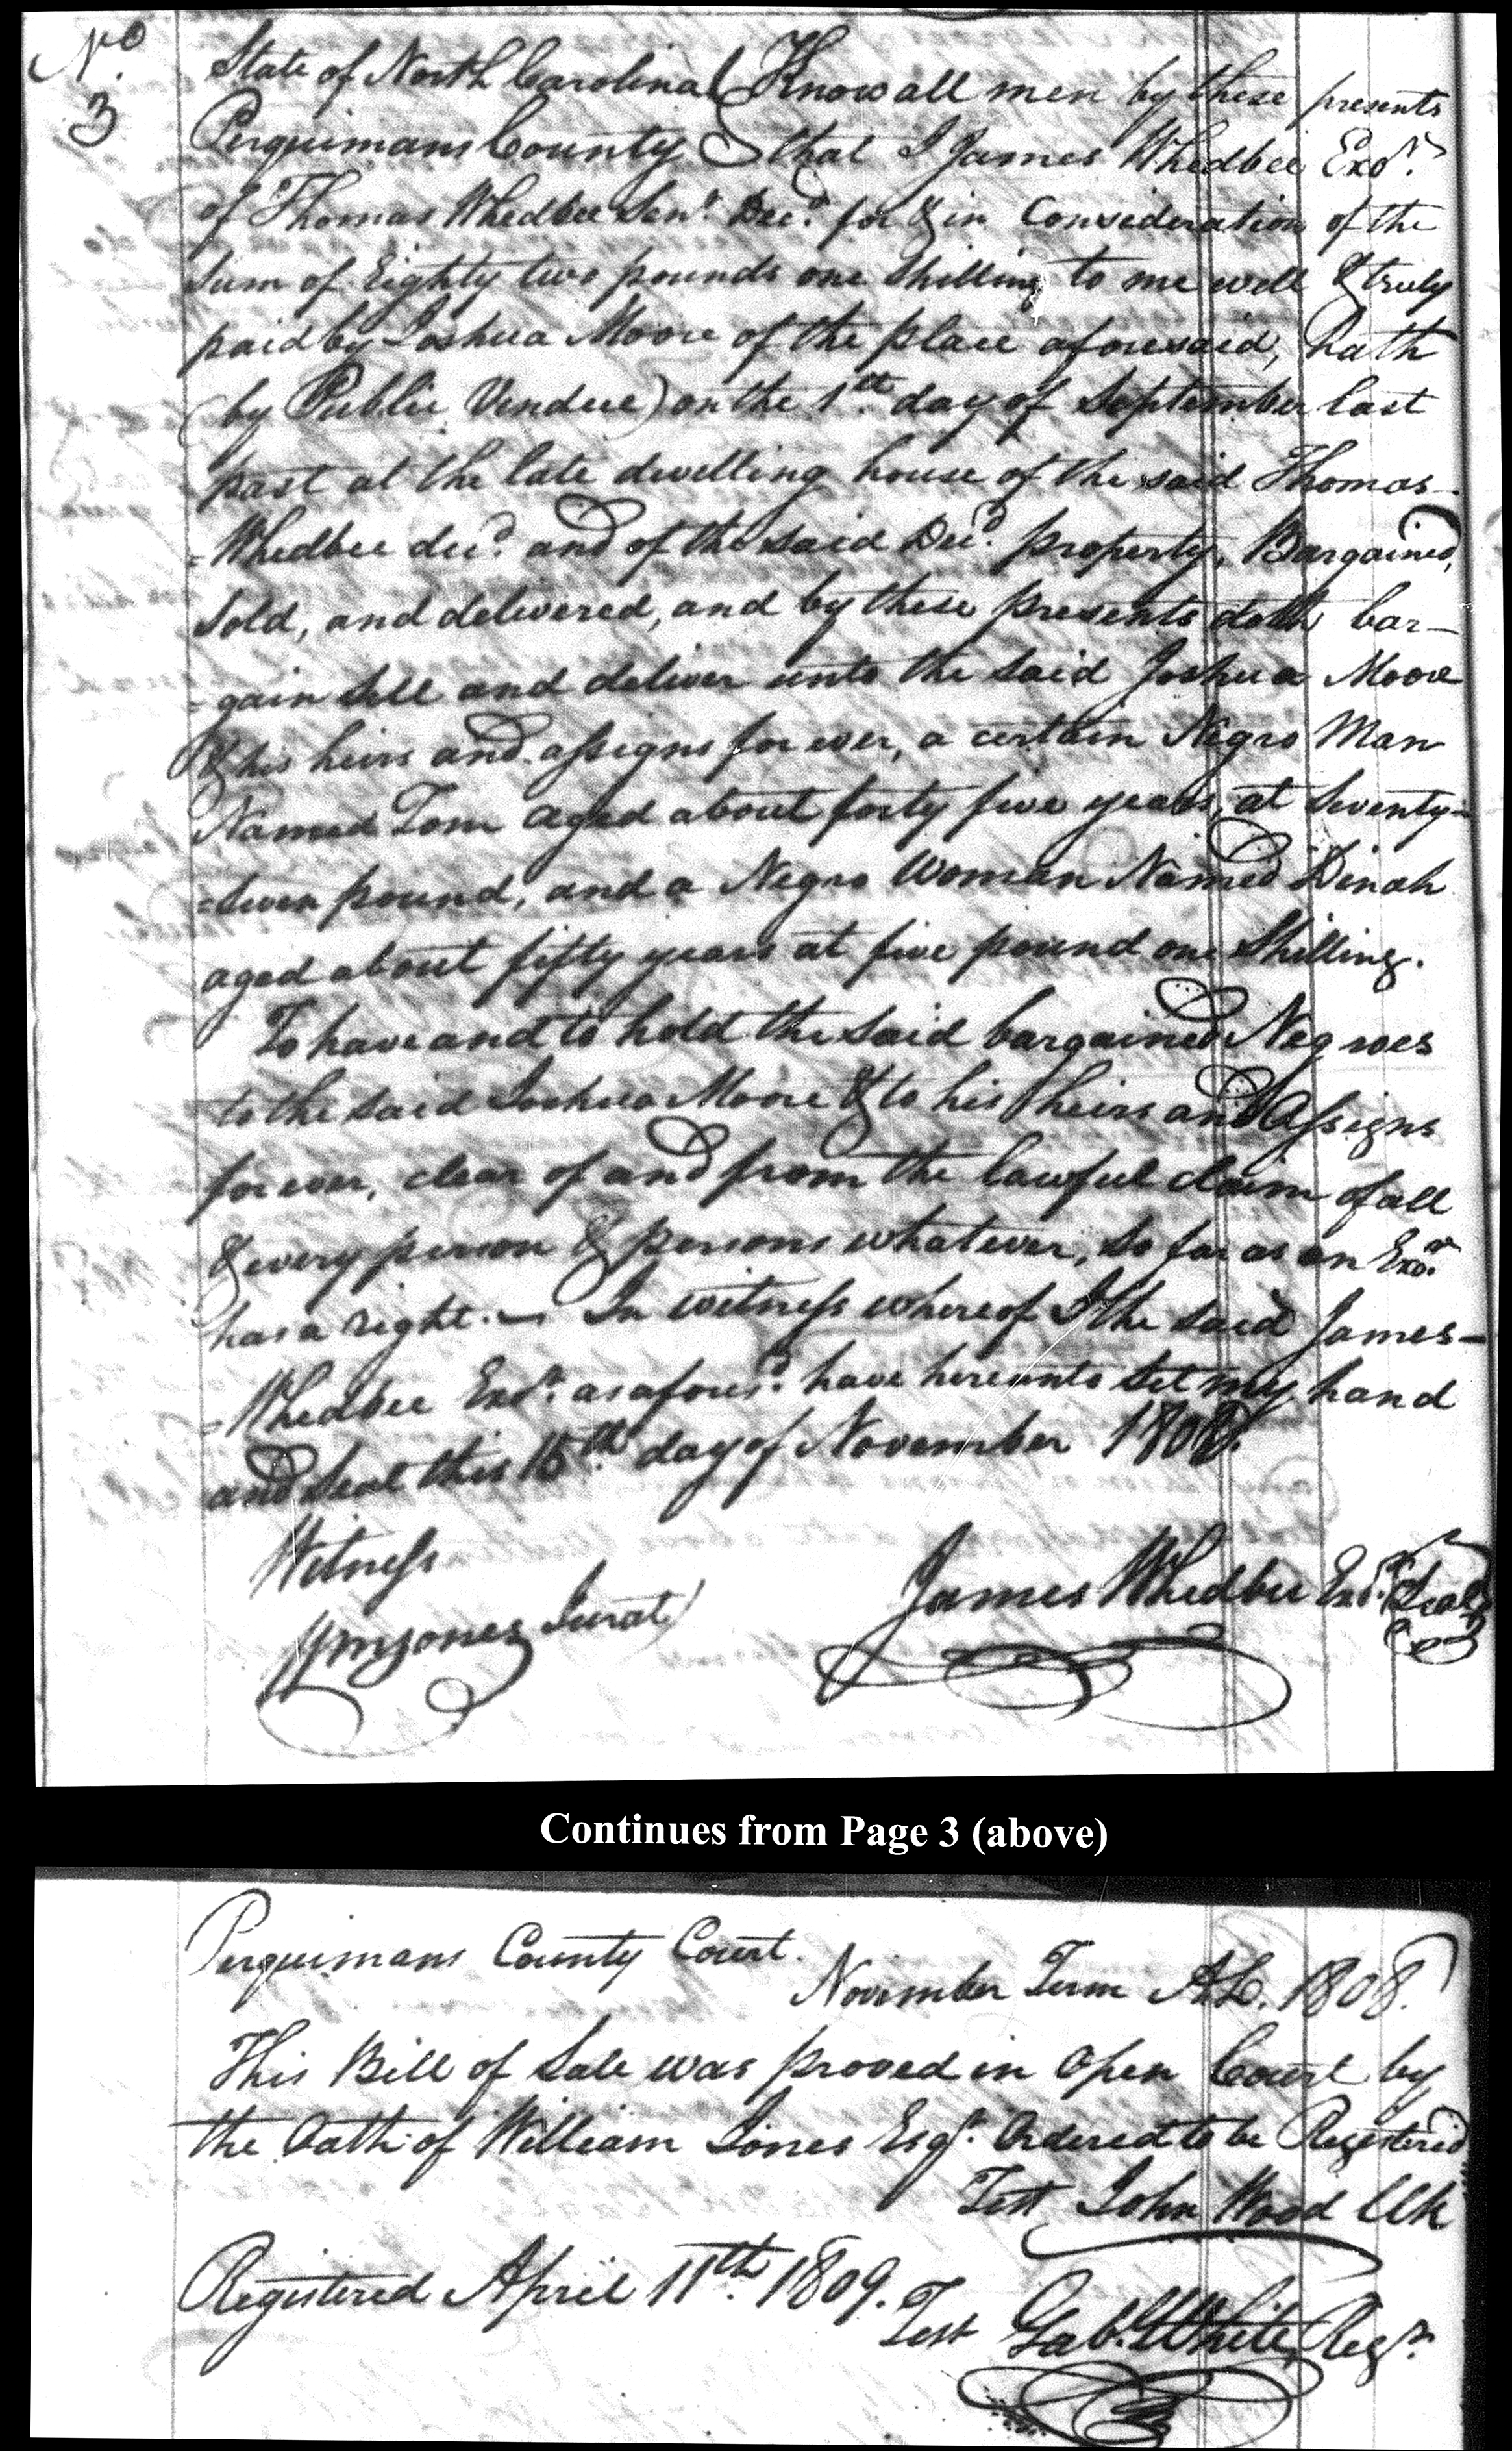 No.
3
State of North Carolina Know all men by these presents
Perquimans County that I James Whedbee Exor.
of Thomas Whedbee Senr. Decd. for & in Consideration of the
Sum of Eighty two pounds one Shilling to me well & truly
paid by Joshua Moore of the place aforesaid, hath
(by Public Vendue) on the 1th day of September last
past at the late dwelling house of the said Thomas
=Whedbee decd. and of the said Decd. property, Bargained,
Sold, and delivered, and by these presents doth bar-
=gain sell and deliver unto the said Joshua Moore
& his heirs and assigns for ever, a certain Negro Man
Named Tom aged about forty five years, at Seventy=
=Seven pound, and a Negro Woman Named Dinah
aged about fifty years at five pound one Shilling.
To have and to hold the said bargained Negroes
to the said Joshua Moore & to his heirs and Assigns
for ever, clear of and from the lawful claim of all
& every person & persons whatever, so far as an Exor.
has a right. — In witness whereof I the said James=
=Whedbee Exor. as afores.d have hereunto set my hand
and Seal this 15th. day of November 1808.
Witness
Wm Jones Jurat
James Whedbee Exr. Seal
Continues from Page 3 (above)
Perquimans County Court.
November Term A.D. 1808.
This Bill of Sale was proved in Open Court by
the Oath of William Jones Esqr. Ordered to be Registered
Test John Wood Clk
Registered April 11th. 1809.
Test Gab. White Regr.